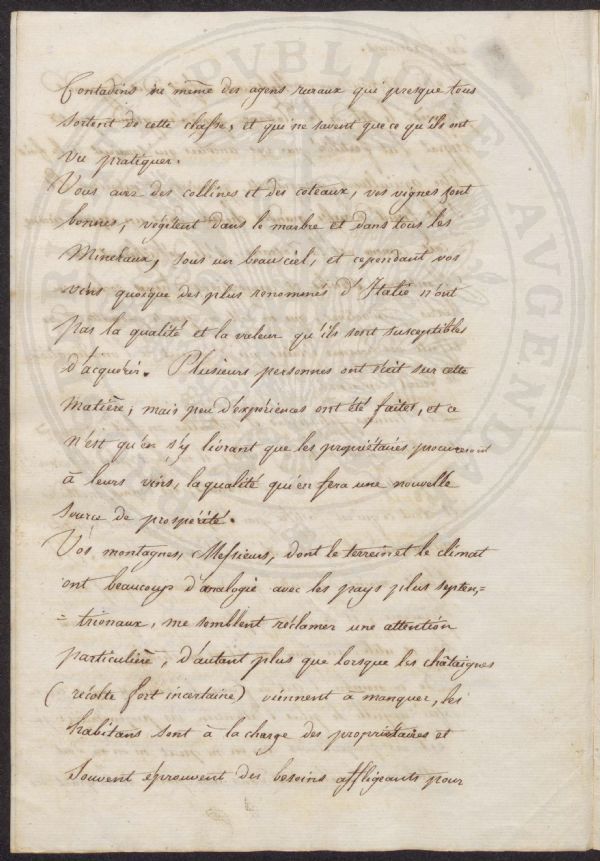 Contadins ni même des agens ruraux qui presque tous
sortent de cette classe, et qui ne savent que ce qu'ils ont
vu pratiquer.
Vous avez des collines et des coteaux, vos vignes sont
bonnes, végètent dans le marbre et dans tous les
Minéraux, sous un beau ciel, et cependant vos
vins quoique des plus renommés d'Italie n'ont
pas la qualité et la valeur qu'ils sont susceptibles
d'acquérir. Plusieurs personnes ont écrit sur cette
matière, mais peu d'expériences ont été faites, et ce
n'est qu'en s'y livrant que les propriétaires procureront
à leurs vins, la qualité qui en fera une nouvelle
source de prospérité.
Vos montagnes, Messieurs, dont le terrein et le climat
ont beaucoup d'analogie avec les pays plus septen,=
=trionaux, me semblent réclamer une attention
particulière, d'autant plus que lorsque les châtaignes
(récolte fort incertaine) viennent à manquer, les
habitans sont à la charge des propriétaires et
souvent éprouvent des besoins affligeants pour